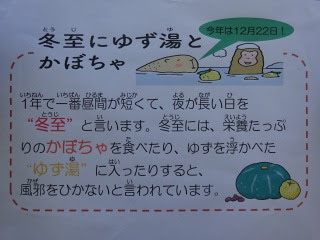 冬至にゆず湯と
かぼちゃ
今年は12月22日！
1年で一番昼間が短くて、夜が長い日を
“冬至”と言います。冬至には、栄養たっぷ
りのかぼちゃを食べたり、ゆずを浮かべた
“ゆず湯”に入ったりすると、
風邪をひかないと言われています。